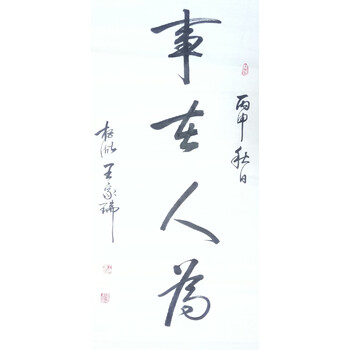 丙申秋日
事在人為
王家瑞